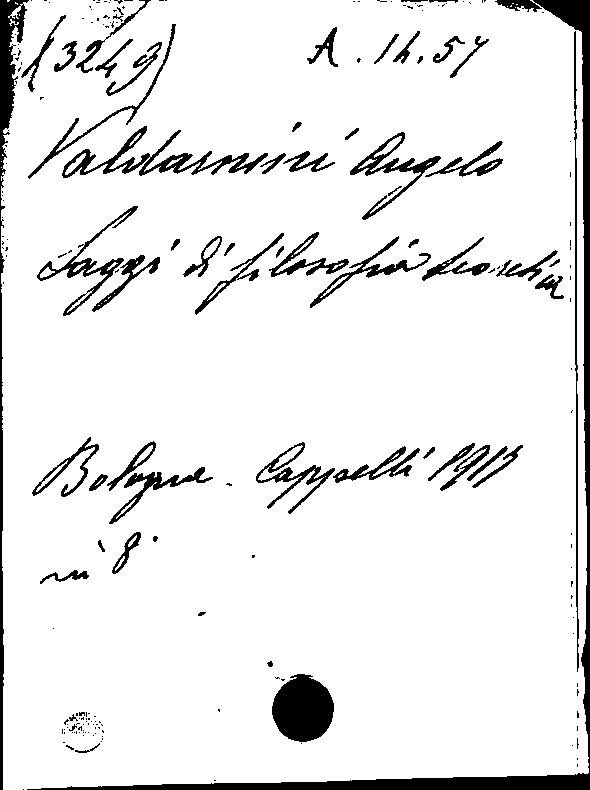 (3249) A.14.57
Valdarnini Angelo
Saggi di filosofia teoretica
Bologna. Cappelli 1913
in 8°